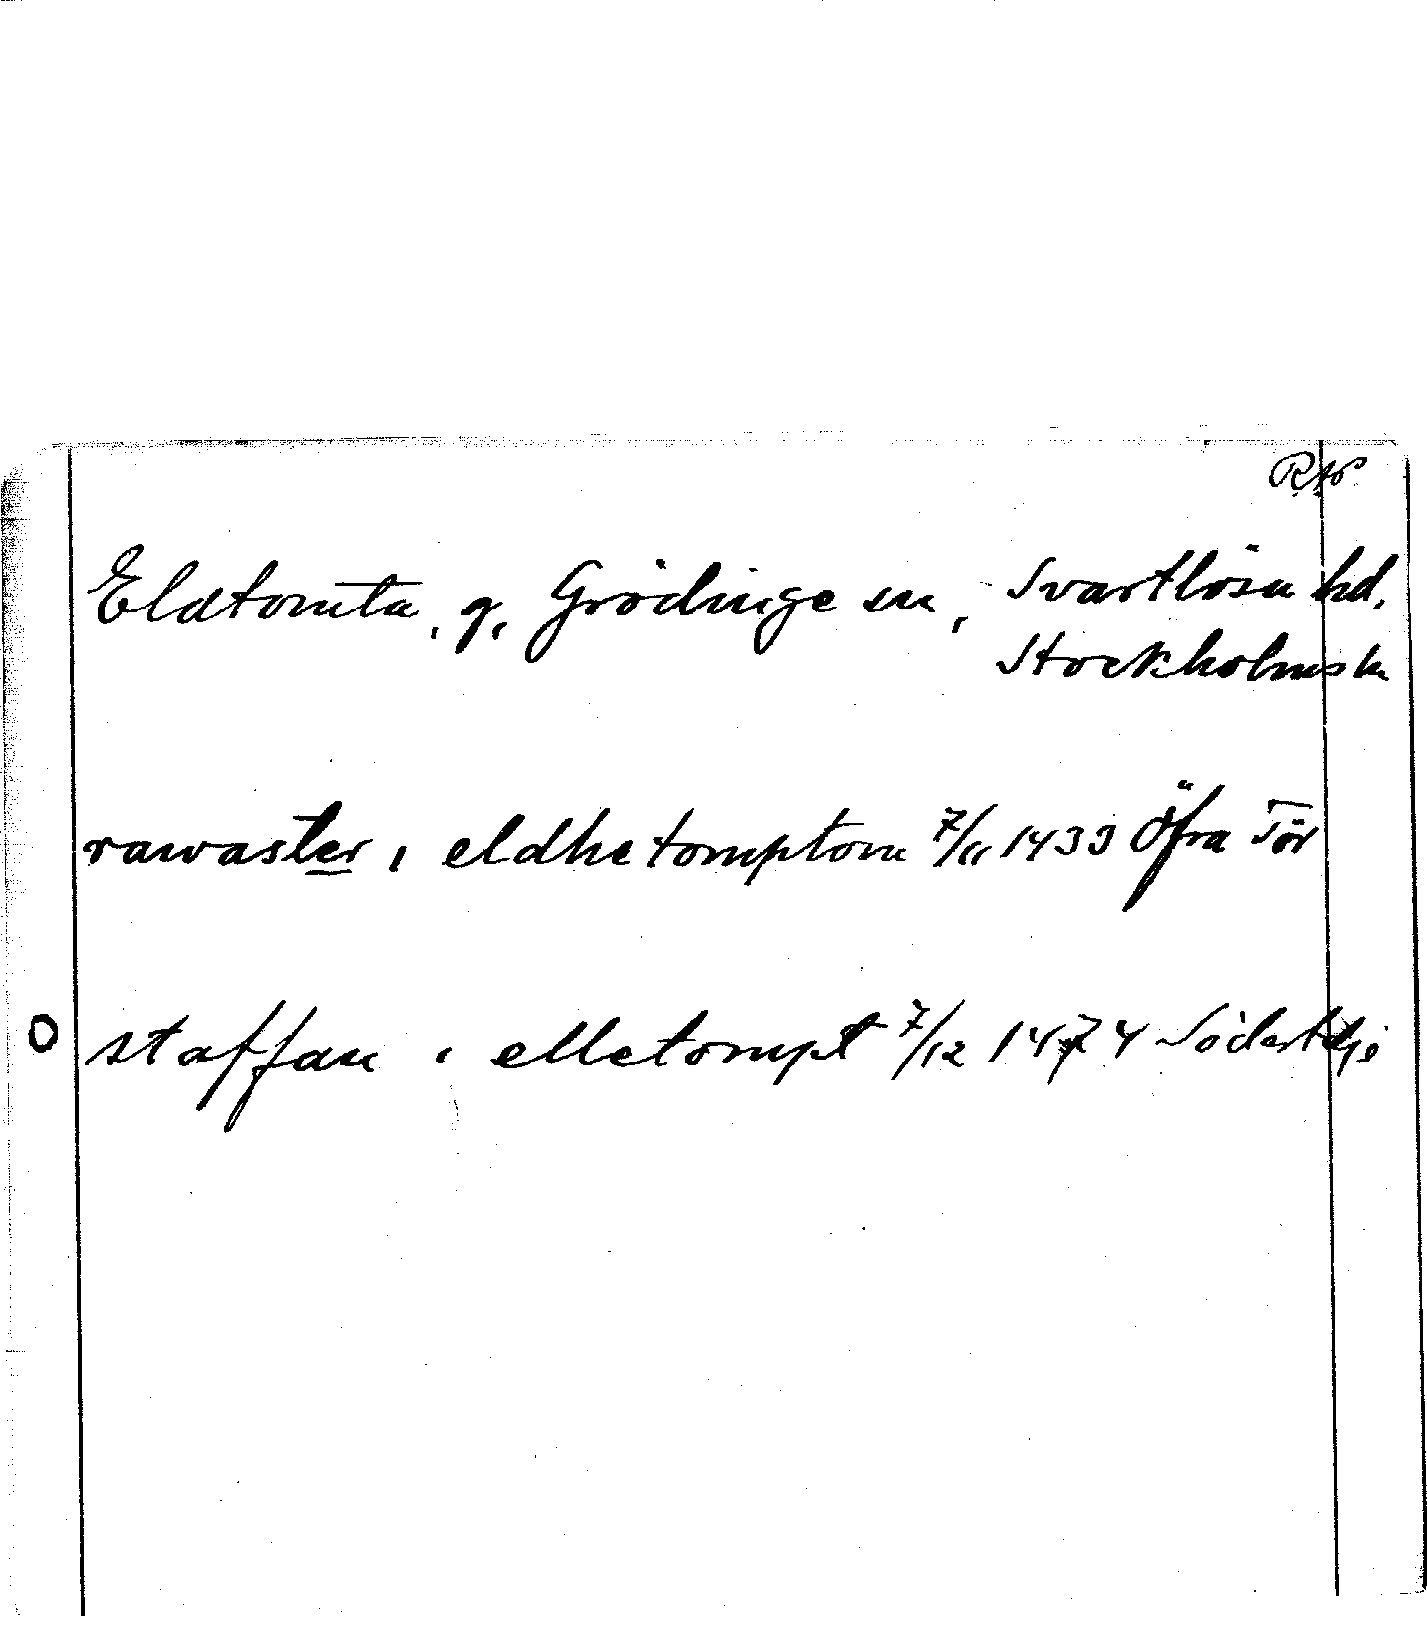 RAP
Eldtomta, g, Grödinge sn, Svartlösa hd.
Stockholms ln
rawaster i eldhetomptom 7/11 1433 Öfra Tör
staffan i elletompt 7/12 1474 Södertelje